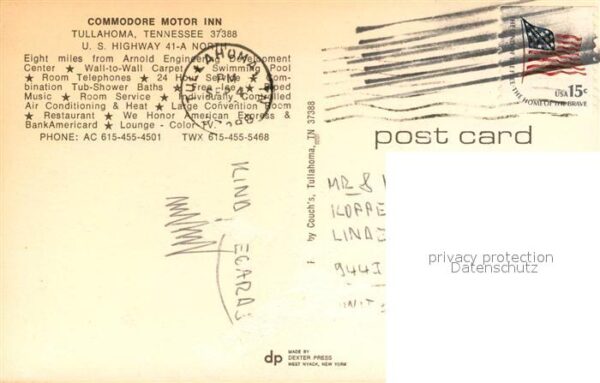 COMMODORE MOTOR INN
TULLAHOMA, TENNESSEE 37388
U. S. HIGHWAY 41-A NORTH
Eight miles from Arnold Engineering Development
Center ★ Wall-to-Wall Carpet ★ Swimming Pool
★ Room Telephones ★ 24 Hour Service ★ Com-
bination Tub-Shower Baths ★ Free Ice ★ Good
Music ★ Room Service ★ Individually Controlled
Air Conditioning & Heat ★ Large Convention Room
★ Restaurant ★ We Honor American Express &
BankAmericard ★ Lounge - Color TV.
PHONE: AC 615-455-4501 TWX 615-455-5468
TULLAHOMA
PM
USA 15c
THE HOME OF THE BRAVE
post card
by Couch's, Tullahoma, TN 37388
MR &
KOPPE
LINDE
944
KIND
dp
MADE BY
DEXTER PRESS
WEST NYACK, NEW YORK
privacy protection
Datenschutz